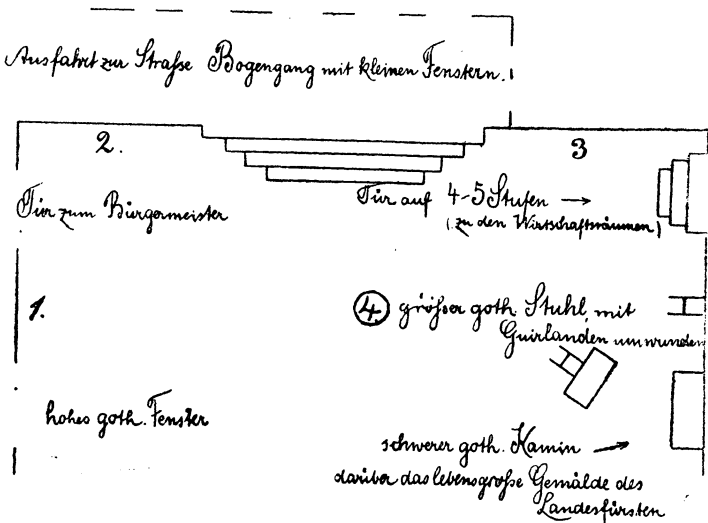 Ausfahrt zur Straße Bogengang mit kleinen Fenstern.
2.
3
Tür zum Bürgermeister
Tür auf 4-5 Stufen →
(zu den Wirtschaftsräumen)
1.
4. großer goth. Stuhl, mit
Guirlanden umwunden
hohes goth. Fenster
schwerer goth. Kamin →
darüber das lebensgroße Gemälde des
Landesfürsten